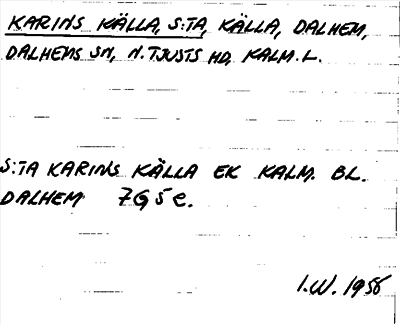 KARINS KÄLLA, S:TA, KÄLLA, DALHEM,
DALHEMS SN, N. TJUSTS HD, KALM. L.
S:TA KARINS KÄLLA EK KALM. BL.
DALHEM 7G 5e.
I.W. 1956